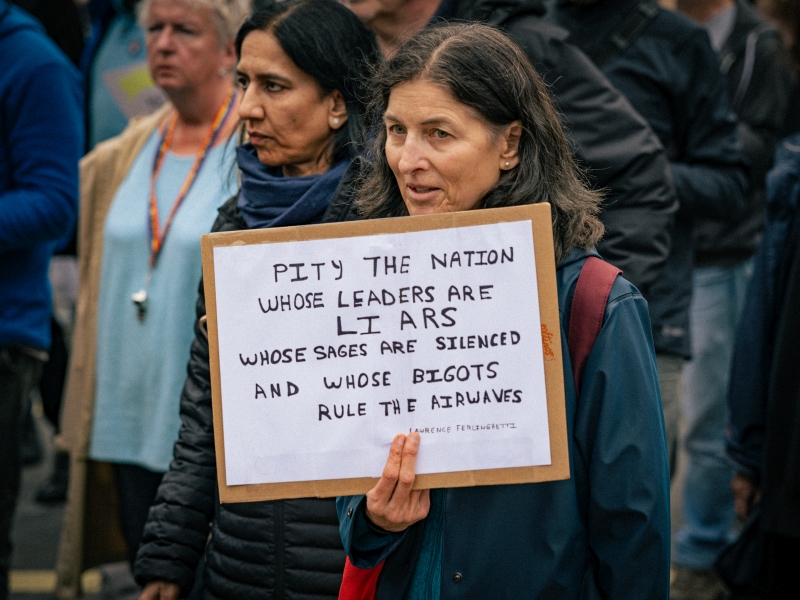 PITY THE NATION
WHOSE LEADERS ARE
LIARS
WHOSE SAGES ARE SILENCED
AND WHOSE BIGOTS
RULE THE AIRWAVES
LAWRENCE FERLINGHETTI